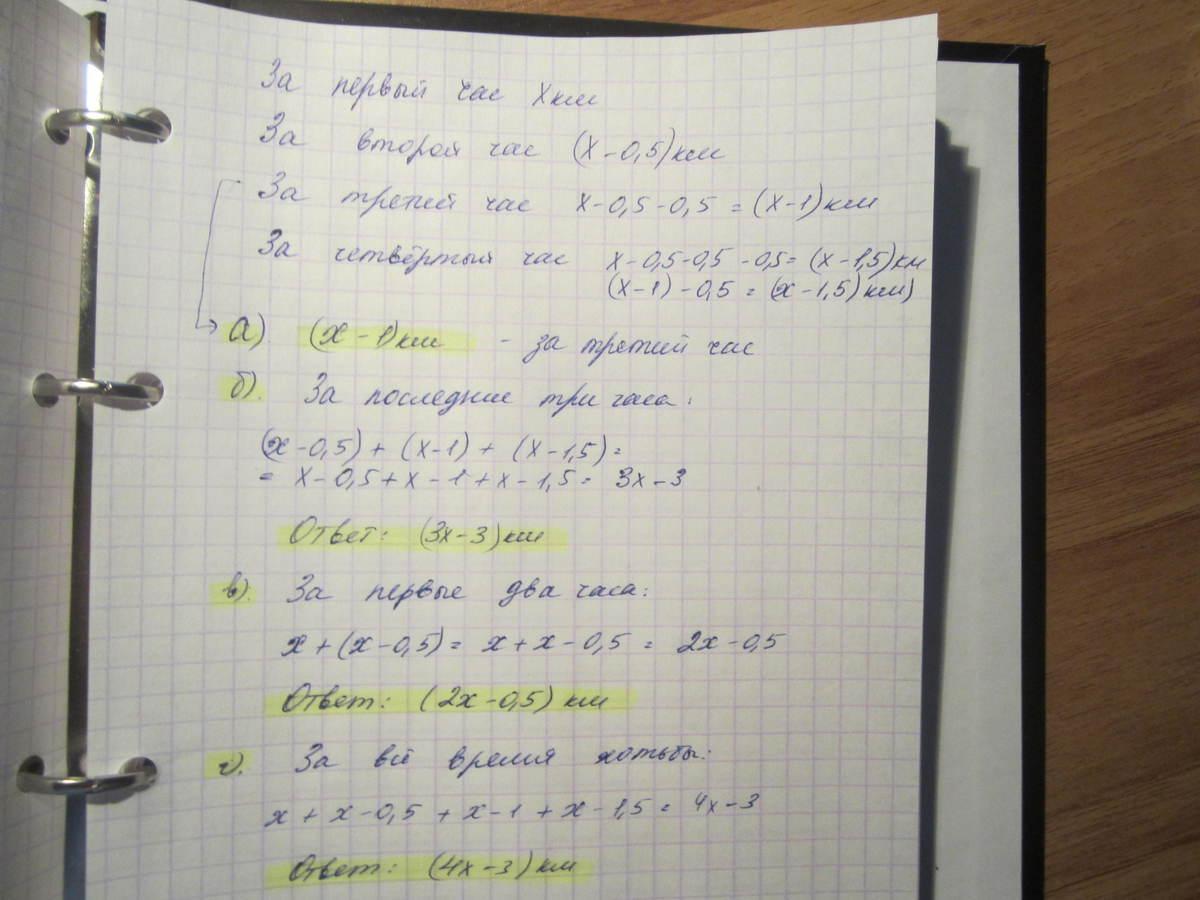 За первый час х км
За второй час (х-0,5) км
За третий час х-0,5-0,5 = (х-1) км
За четвёртый час х-0,5-0,5-0,5 = (х-1,5) км
(х-1)-0,5 = (х-1,5) км)
а) (х-1) км - за третий час
б). За последние три часа:
(х-0,5) + (х-1) + (х-1,5) =
= х-0,5+х-1+х-1,5 = 3х-3
Ответ: (3х-3) км
в). За первые два часа:
х+(х-0,5) = х+х-0,5 = 2х-0,5
Ответ: (2х-0,5) км
г). За всё время хотьбы:
х + х-0,5 + х-1 + х-1,5 = 4х-3
Ответ: (4х-3) км